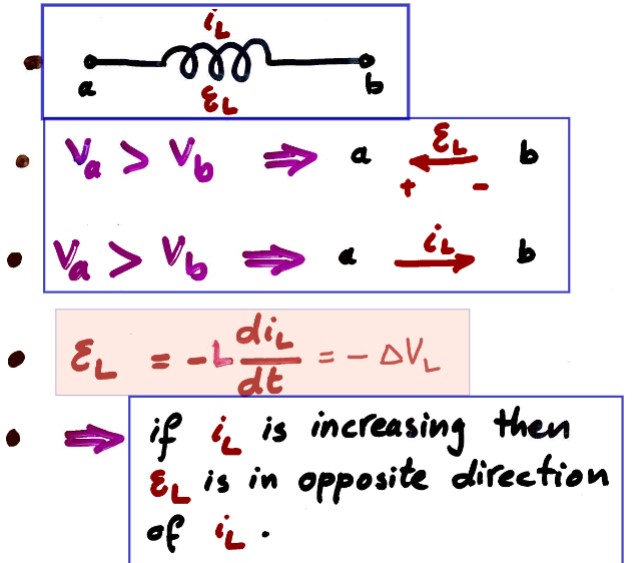 i_L
a b
ε_L
V_a > V_b ⇒ a ←ε_L b
+ -
V_a > V_b ⇒ a i_L→ b
ε_L = -L di_L/dt = - ΔV_L
⇒ if i_L is increasing then
ε_L is in opposite direction
of i_L.